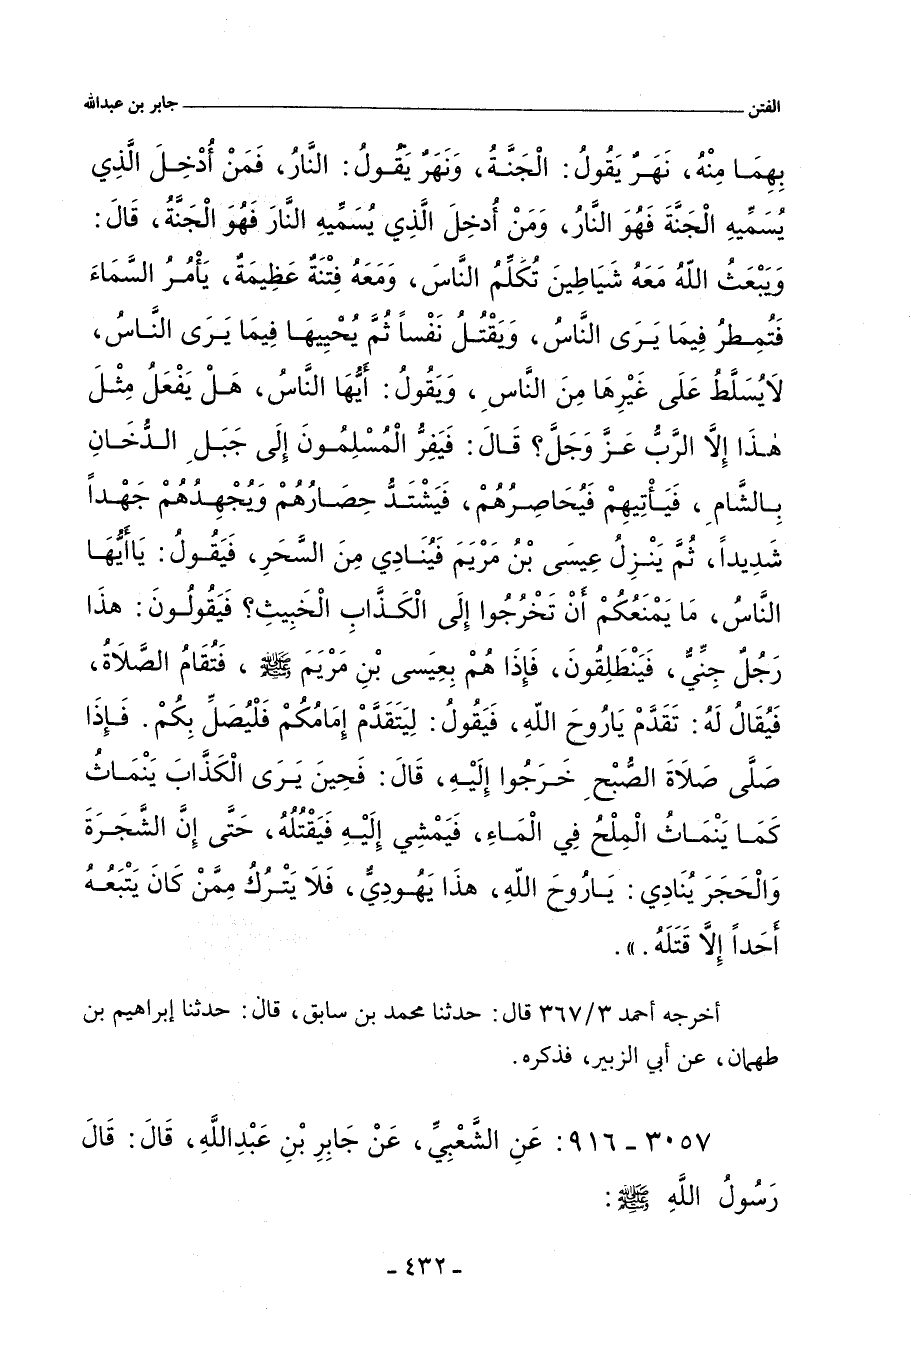 الفتن ــــــــــــــــــــــــــــــــــــــــ جابر بن عبدالله
بِهِمَا مِنْهُ، نَهَرٌ يَقُولُ: الْجَنَّةُ، وَنَهَرٌ يَقُولُ: النَّارُ، فَمَنْ أُدْخِلَ الَّذِي
يُسَمِّيهِ الْجَنَّةَ فَهُوَ النَّارُ، وَمَنْ أُدخِلَ الَّذِي يُسَمِّيهِ النَّارَ فَهُوَ الْجَنَّةُ، قَالَ:
وَيَبْعَثُ اللَّهُ مَعَهُ شَيَاطِينَ تُكَلِّمُ النَّاسَ، وَمَعَهُ فِتْنَةٌ عَظِيمَةٌ، يَأْمُرُ السَّمَاءَ
فَتُمِطرُ فِيمَا يَرَى النَّاسُ، وَيَقْتُلُ نَفْساً ثُمَّ يُحْيِيهَا فِيمَا يَرَى النَّاسُ،
لَايُسَلَّطُ عَلَى غَيْرِهَا مِنَ النَّاسِ، وَيَقُولُ: أَيُّهَا النَّاسُ، هَلْ يَفْعَلُ مِثْلَ
هٰذَا إِلَّا الرَّبُّ عَزَّ وَجَلَّ؟ قَالَ: فَيَفِرُّ الْمُسْلِمُونَ إِلَى جَبَلِ الدُّخَانِ
بِالشَّامِ، فَيَأْتِيهِمْ فَيُحَاصِرُهُمْ، فَيَشْتَدُّ حِصَارُهُمْ وَيُجْهِدُهُمْ جَهْداً
شَدِيداً، ثُمَّ يَنْزِلُ عِيسَى بْنُ مَرْيَمَ فَيُنَادِي مِنَ السَّحَرِ، فَيَقُولُ: يَاأَيُّهَا
النَّاسُ، مَا يَمْنَعُكُمْ أَنْ تَخْرُجُوا إِلَى الْكَذَّابِ الْخَبِيثِ؟ فَيَقُولُونَ: هذَا
رَجُلٌ جِنِّيٌّ، فَيَنْطَلِقُونَ، فَإِذَا هُمْ بِعِيسَى بْنِ مَرْيَمَ ﷺ، فَتُقَامُ الصَّلَاةُ،
فَيُقَالُ لَهُ: تَقَدَّمْ يَارُوحَ اللَّهِ، فَيَقُولُ: لِيَتَقَدَّمْ إِمَامُكُمْ فَلْيُصَلِّ بِكُمْ. فَإِذَا
صَلَّى صَلَاةَ الصُّبْحِ خَرَجُوا إِلَيْهِ، قَالَ: فَحِينَ يَرَى الْكَذَّابَ يَنْمَاثُ
كَمَا يَنْمَاثُ الْمِلْحُ فِي الْمَاءِ، فَيَمْشِي إِلَيْهِ فَيَقْتُلُهُ، حَتَّى إِنَّ الشَّجَرَةَ
وَالْحَجَرَ يُنَادِي: يَارُوحَ اللَّهِ، هذَا يَهُودِيٌّ، فَلَا يَتْرُكُ مِمَّنْ كَانَ يَتْبَعُهُ
أَحَداً إِلَّا قَتَلَهُ.».
أخرجه أحمد ٣/٣٦٧ قال: حدثنا محمد بن سابق، قال: حدثنا إبراهيم بن
طهمان، عن أبي الزبير، فذكره.
٣٠٥٧ - ٩١٦: عَنِ الشَّعْبِيِّ، عَنْ جَابِرِ بْنِ عَبْدِاللَّهِ، قَالَ: قَالَ
رَسُولُ اللَّهِ ﷺ:
- ٤٣٢ -